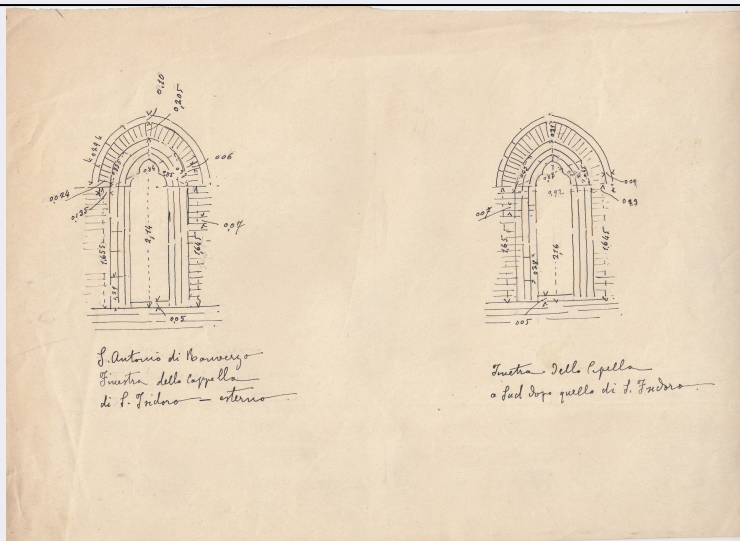 0,20
0,205
0,294
0,06
0,024
0,35
0,07
1,655
2,14
1,645
0,05
S. Antonio di Ranverzo
Finestra della Cappella
di S. Isidoro — esterno
0,09
0,07
1,65
2,16
1,645
0,28
0,05
Finestra della Capella
a Sud dopo quella di S. Isidoro